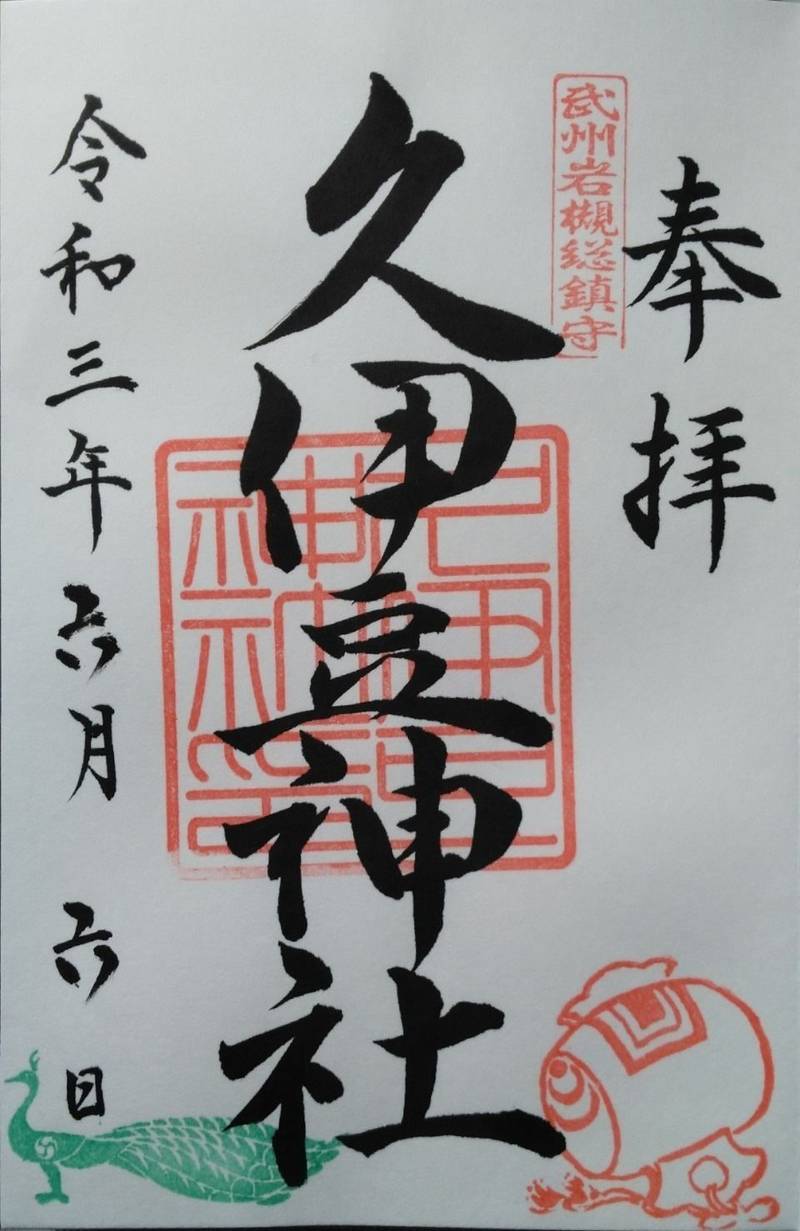 奉拝
武州岩槻総鎮守
久伊豆神社
令和三年六月 六日